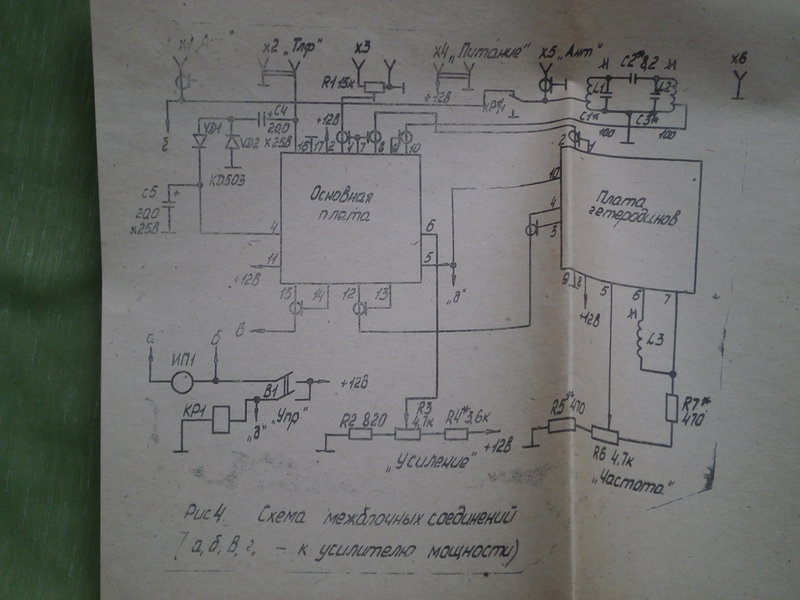 X1 „А
X2 „Тлф"
X3
X4 „Питание"
X5 „Ант"
X6
R1 15к
+12В
КР1/1
L1
C2* 8,2
L2
C1*
100
C3*
100
VD1
VD2
C4
20,0
x25В
КД503
C5
20,0
x25В
г
+12В
16 17 2 1 7 8 9 10
Основная
плата
4
11
+12В
6
5
„д"
15 14 12 13
в
2 1
10
4
3
Плата
гетеродинов
9 8 5 6 7
+12В
L3
а
б
ИП1
КР1
В1
„д"
„Упр"
+12В
R2 820
R3
4,7к
R4* 3,6к
+12В
„Усиление"
R5* 470
R6 4,7к
R7*
470
„Частота"
Рис4. Схема межблочных соединений
(а, б, в, г, – к усилителю мощности)